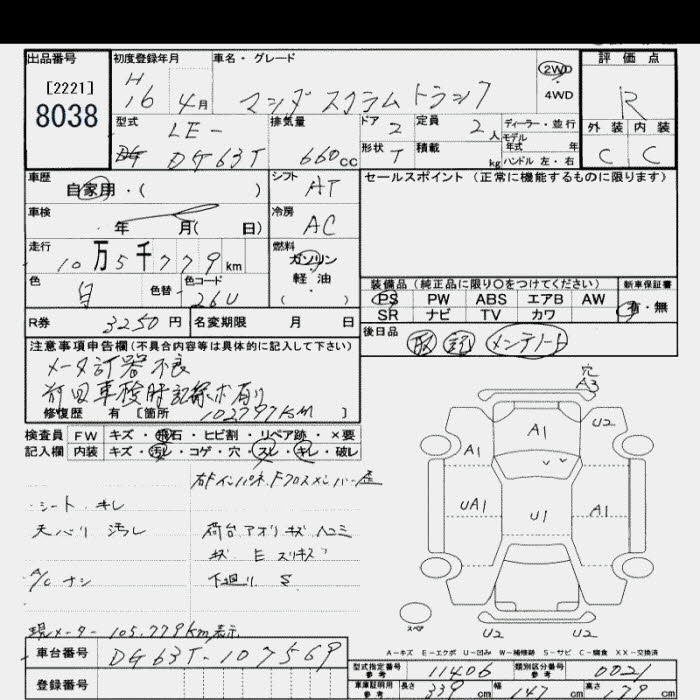 出品番号 初度登録年月 車名・グレード 評価点
[2221] H 2WD
8038 16 4月 マツダ スクラム トラック 4WD R
型式 排気量 ドア 定員 ディーラー・並行 外装 内装
LE- 2 2人 モデル年式 年
DG63T 660cc 形状 T 積載 kg ハンドル 左・右 C C
車歴 自家用・( ) シフト AT セールスポイント (正常に機能するものに限ります)
車検 年 月( 日) 冷房 AC
走行 10万5千779km 燃料 ガソリン
軽油
( )
色 白 色替 色コード 26U
装備品 (純正品に限り○をつけてください) 新車保証書
PS PW ABS エアB AW 有・無
SR ナビ TV カワ
R券 3250円 名変期限 月 日
後日品 取 記 メンテノート
注意事項申告欄 (不具合内容等は具体的に記入して下さい)
メータ計器不良
前回車検時記録ボ有り
修復歴 有 [箇所 102797KM ]
穴
A3
検査員 FW キズ・飛石・ヒビ割・リペア跡・×要
記入欄 内装 キズ・汚レ・コゲ・穴・スレ・キレ・破レ
U2
A1
A1
右Fインパネ、Fクロスメンバー歪
シート キレ
天バリ 汚レ 荷台アオリ キズ ヘコミ
UA1 U1 A1
A/C ナシ 下廻り S
スペア
現メーター 105,779km表示
U2 U2
A-キズ E-エクボ U-凹み W-補修跡 S-サビ C-腐食 XX-交換済
車台番号 DG63T-107569
型式指定番号 参考 11406 類別区分番号 参考 0021
登録番号
車庫証明用 参考 長さ 339cm 幅 147cm 高さ 179cm